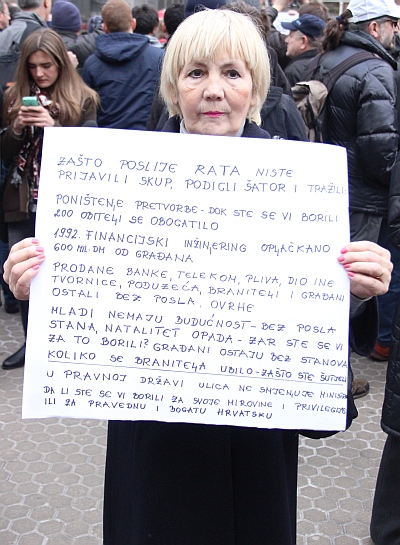 ZAŠTO POSLIJE RATA NISTE
PRIJAVILI SKUP, PODIGLI ŠATOR I TRAŽILI
PONIŠTENJE PRETVORBE - DOK STE SE VI BORILI
200 OBITELJI SE OBOGATILO
1992. FINANCIJSKI INŽINJERING OPLJAČKANO
600 MIL. DM OD GRAĐANA
PRODANE BANKE, TELEKOM, PLIVA, DIO INE
TVORNICE, PODUZEĆA, BRANITELJI I GRAĐANI
OSTALI BEZ POSLA. OVRHE
MLADI NEMAJU BUDUĆNOST - BEZ POSLA
STANA, NATALITET OPADA - ZAR STE SE VI
ZA TO BORILI? GRAĐANI OSTAJU BEZ STANOVA
KOLIKO SE BRANITELJA UBILO - ZAŠTO STE ŠUTJELI
U PRAVNOJ DRŽAVI ULICA NE SMJENJUJE MINISTRA
DA LI STE SE VI BORILI ZA SVOJE MIROVINE I PRIVILEGIJE
ILI ZA PRAVEDNU I BOGATU HRVATSKU